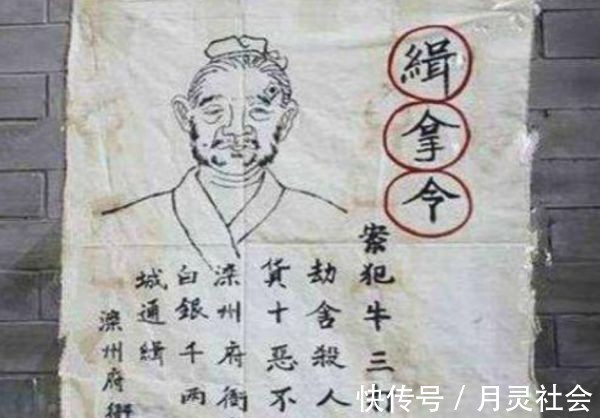 緝拿令
案犯牛三
劫舍殺人
貨十惡不
滦州府衙
白銀千两
城通緝
滦州府衙
快传号／月灵社会